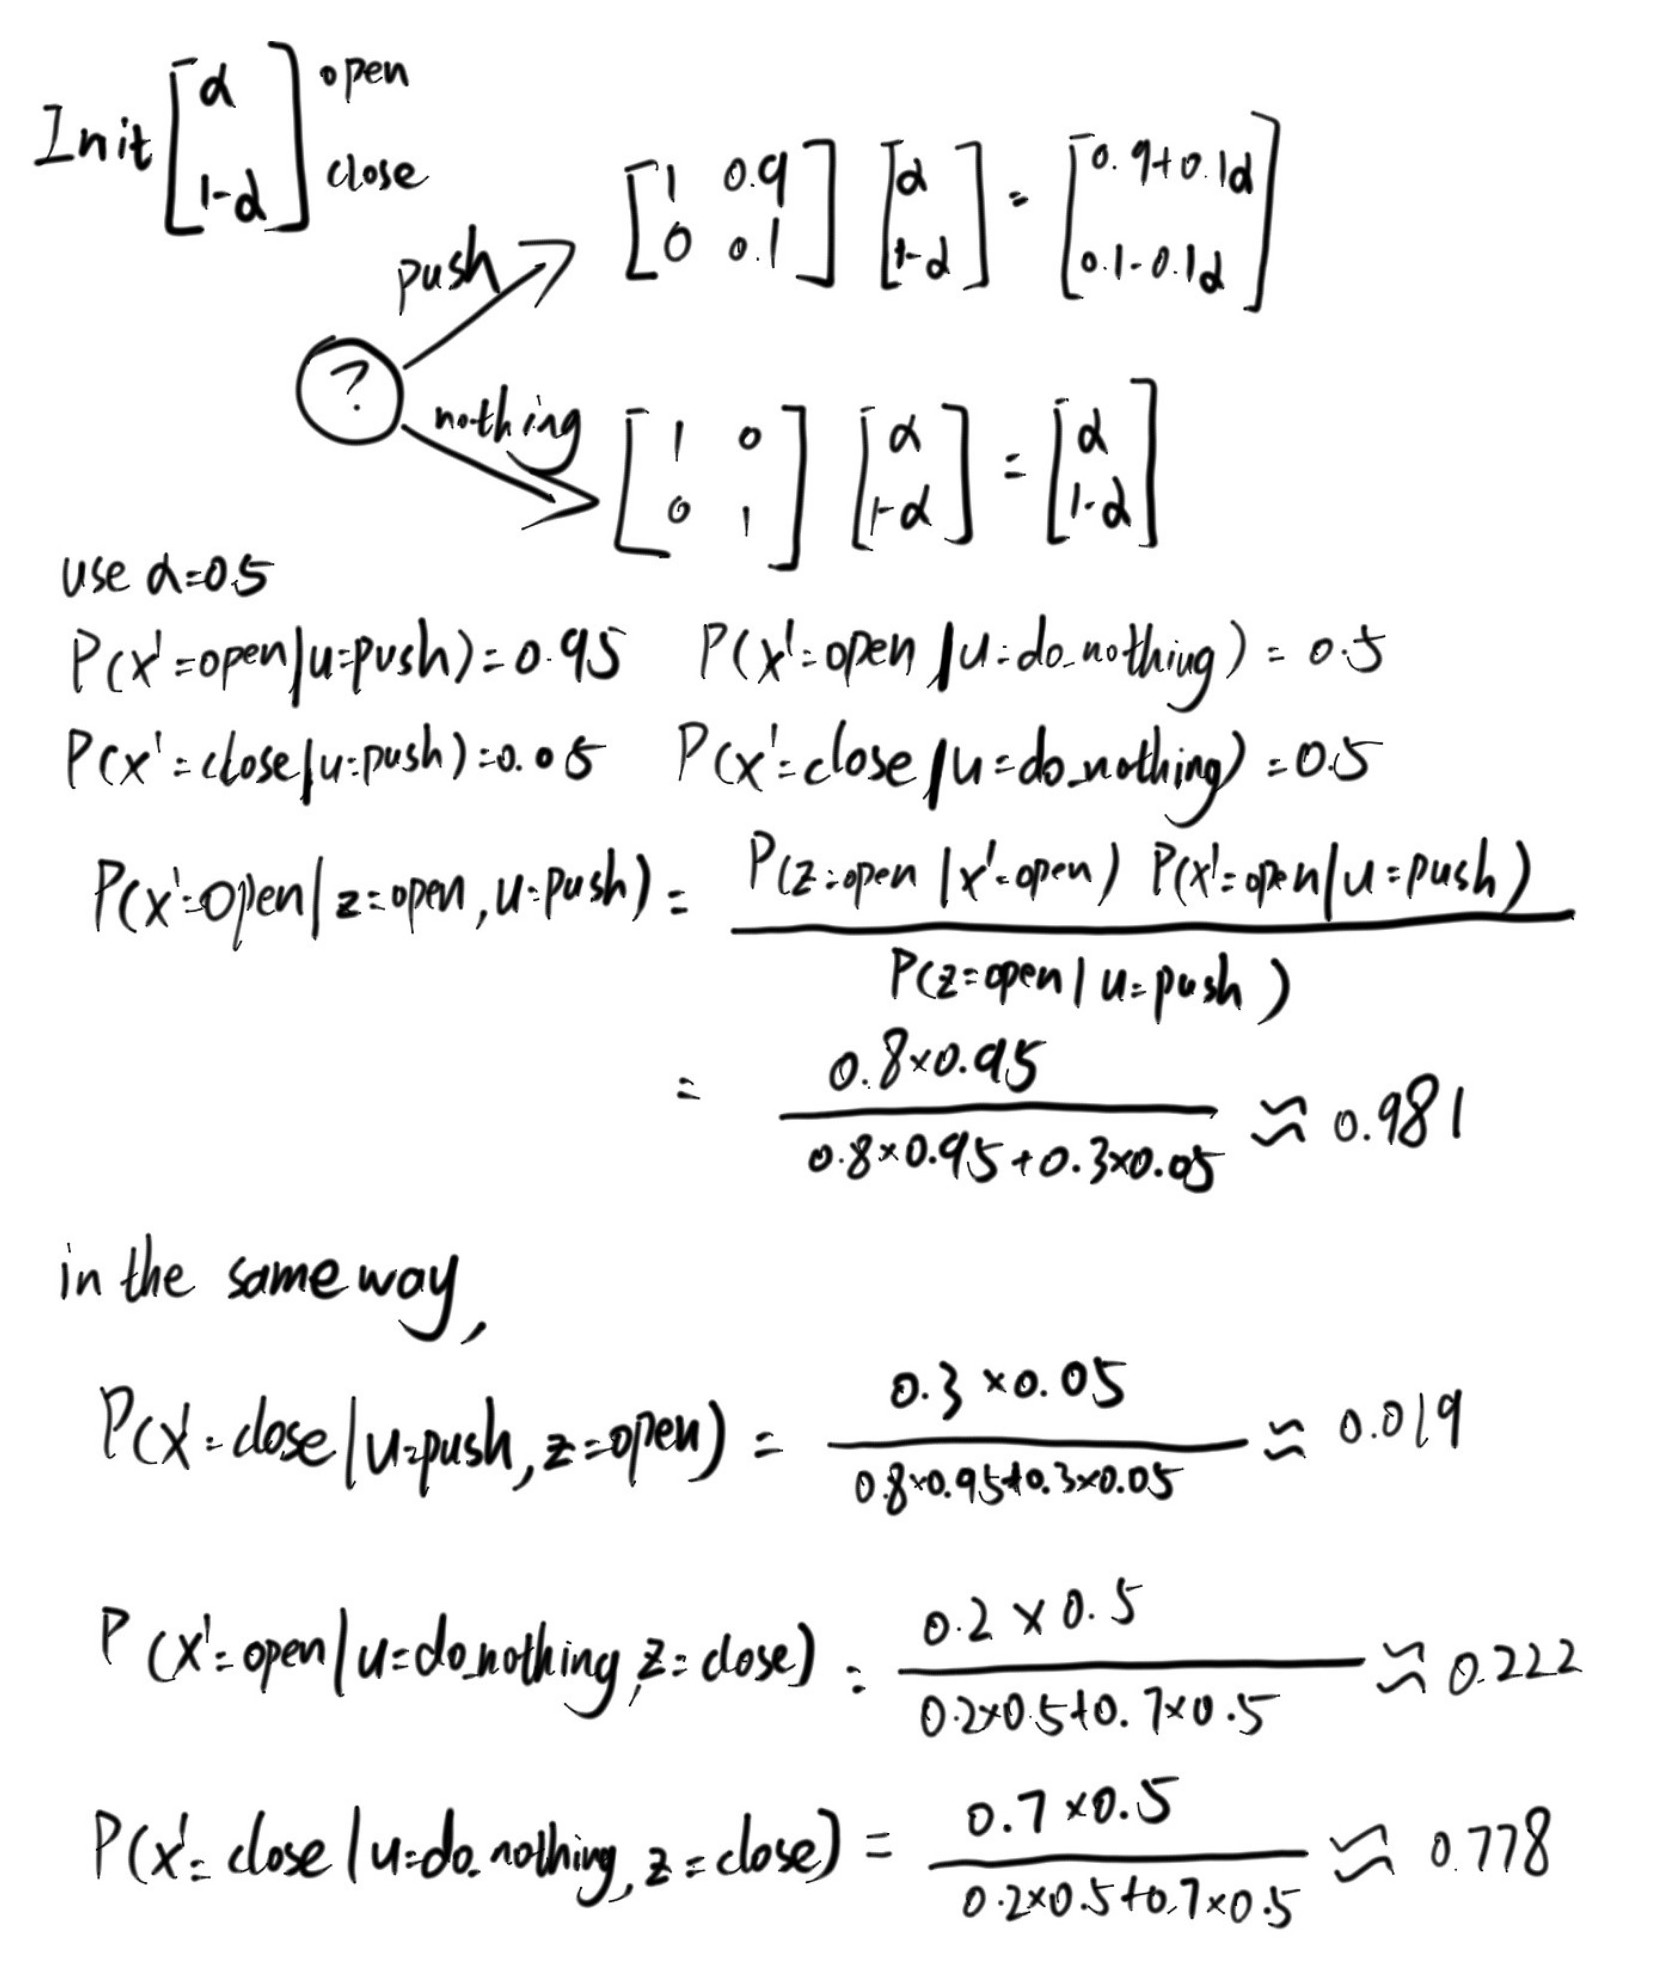 Init [α 1-α] open close
push [1 0.9 0 0.1] [α 1-α] = [0.9+0.1α 0.1-0.1α]
?
nothing [1 0 0 1] [α 1-α] = [α 1-α]
use α=0.5
P(x'=open|u=push)=0.95 P(x'=open|u=do_nothing)=0.5
P(x'=close|u=push)=0.05 P(x'=close|u=do_nothing)=0.5
P(x'=open|z=open,u=push) = P(z=open|x'=open) P(x'=open|u=push)
P(z=open|u=push)
= 0.8×0.95
0.8×0.95+0.3×0.05 ≈ 0.981
in the same way,
P(x'=close|u=push,z=open) = 0.3×0.05
0.8×0.95+0.3×0.05 ≈ 0.019
P(x'=open|u=do_nothing,z=close) = 0.2×0.5
0.2×0.5+0.7×0.5 ≈ 0.222
P(x'=close|u=do_nothing,z=close) = 0.7×0.5
0.2×0.5+0.7×0.5 ≈ 0.778